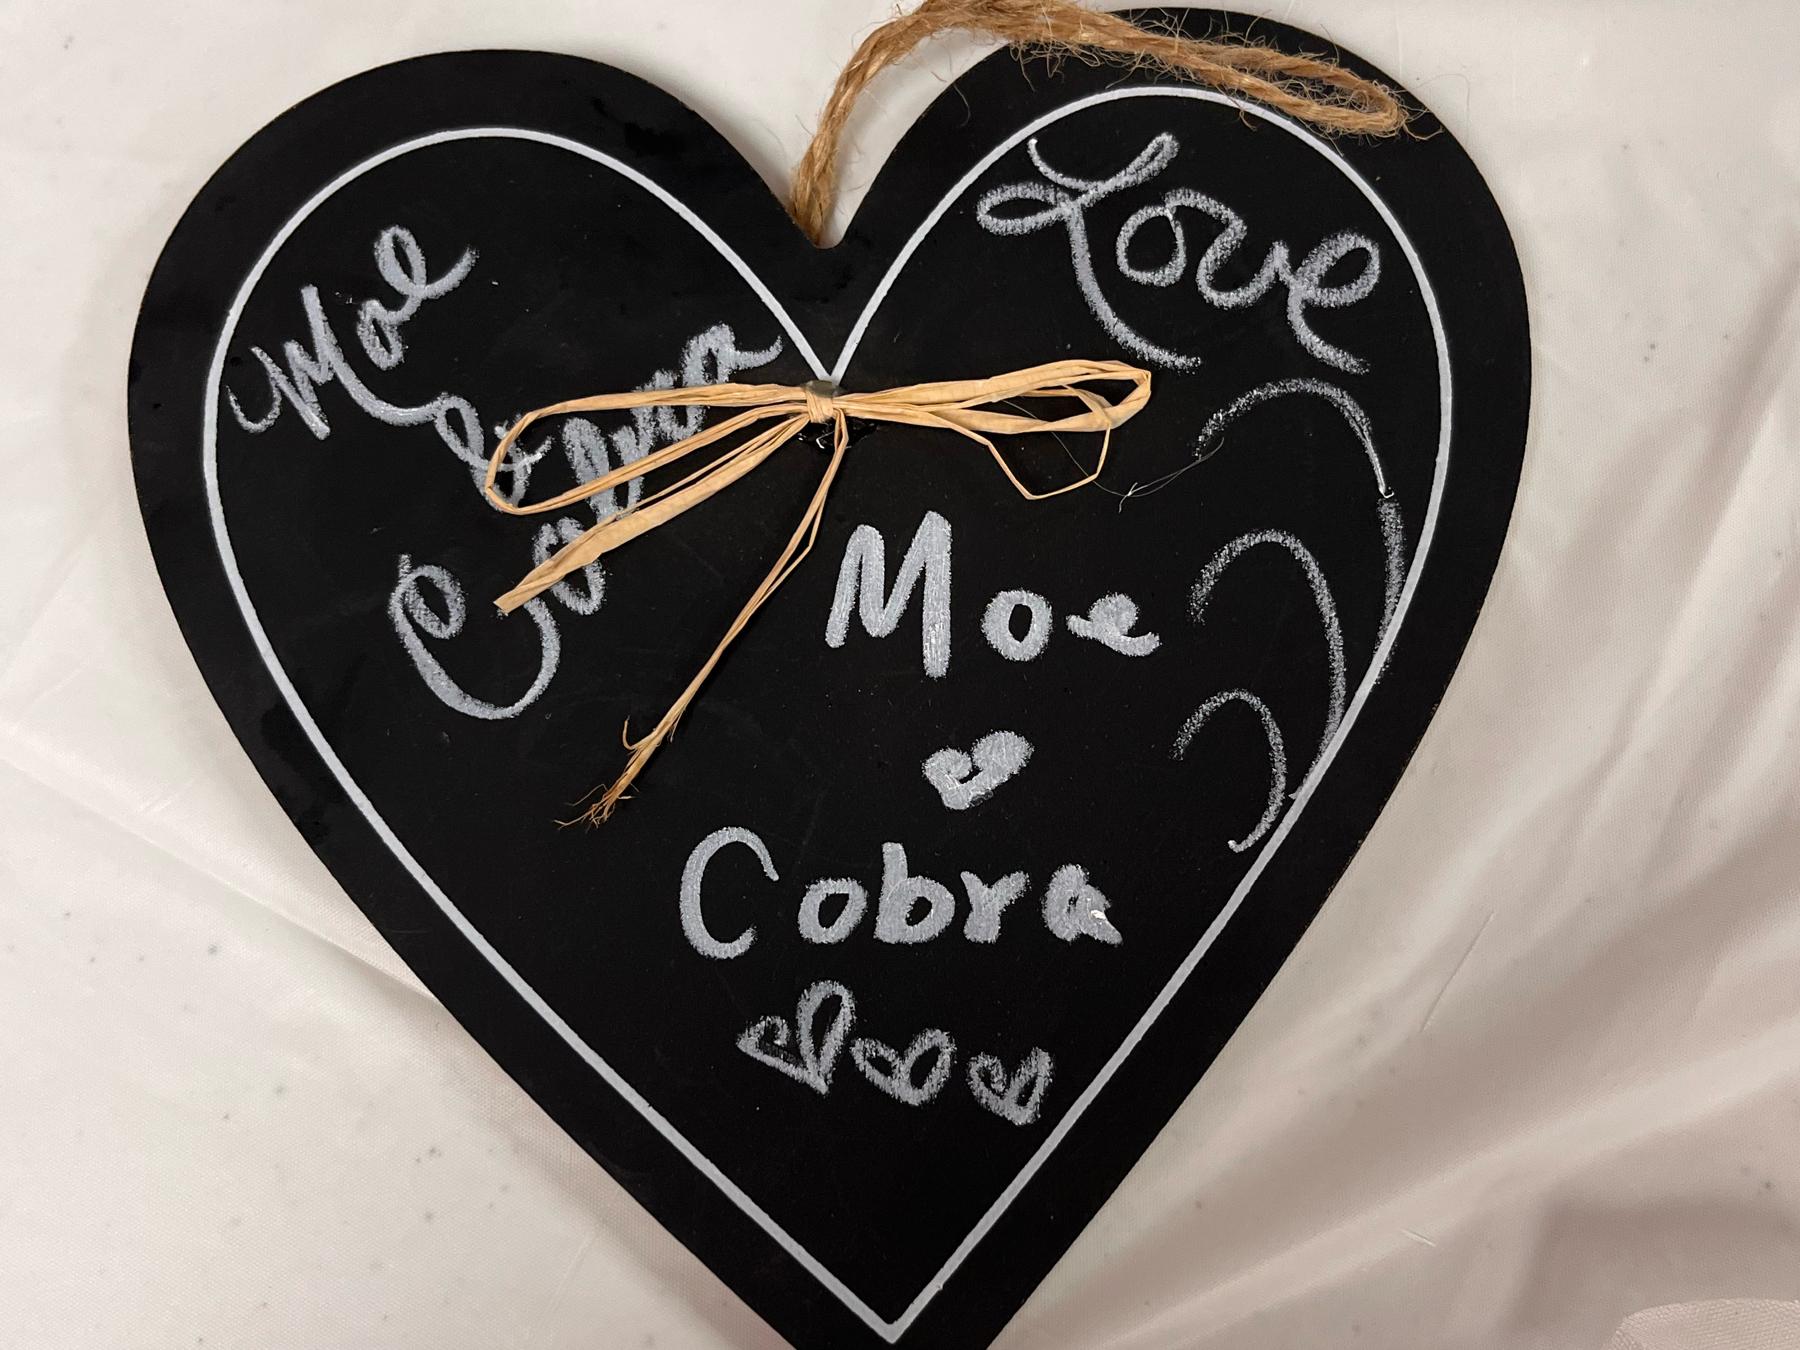 Moe
&
Cobra
Love
Moe
Cobra